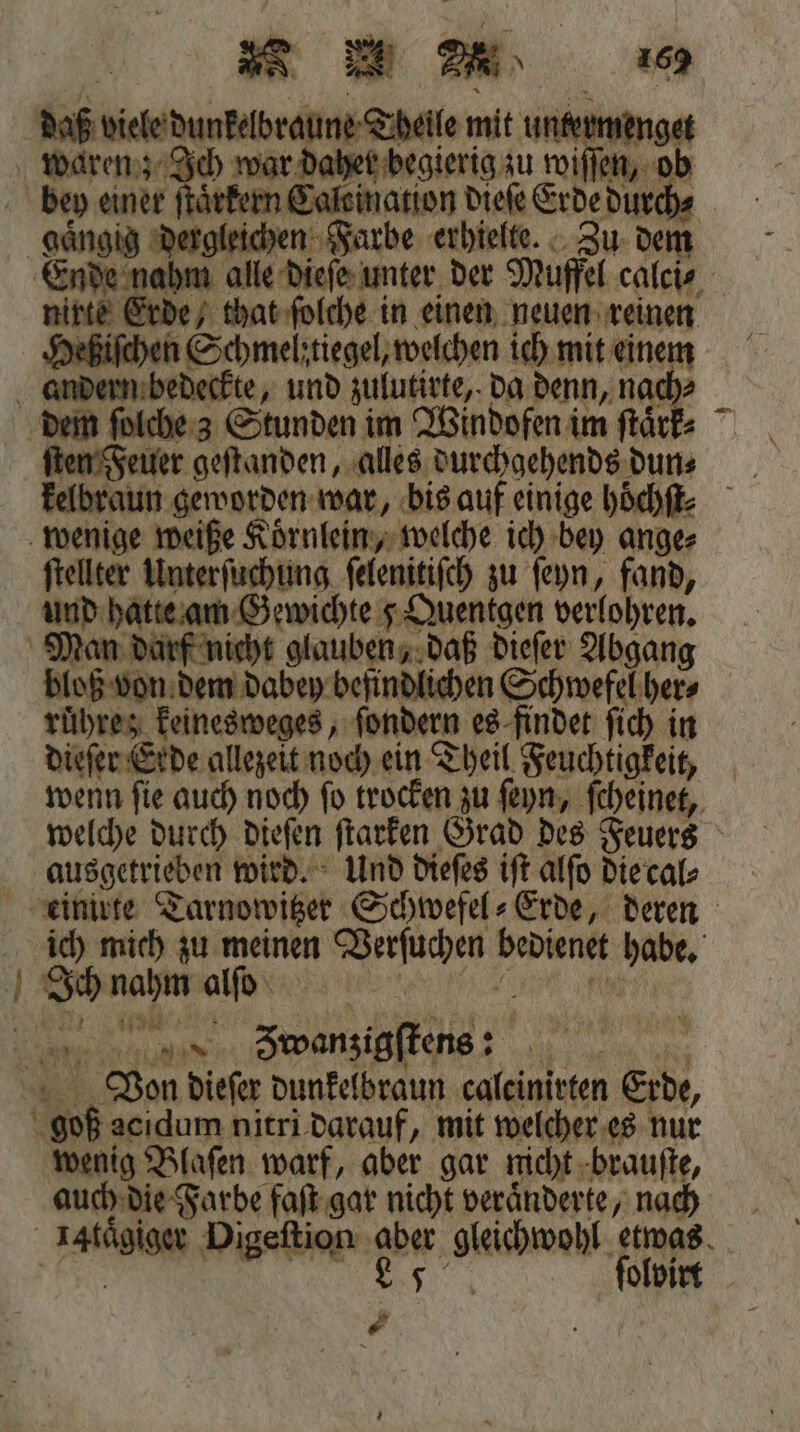 169
daß viele dunkelbraune Theile mit untermenget
waren; Ich war daher begierig zu wiſſen, ob
bey einer ſtårkern Calcination dieſe Erde durch⸗
gångig dergleichen Farbe erhielte. Zu dem
Ende nahm alle dieſe unter der Muffel calci⸗
nirte Erde, that ſolche in einen neuen reinen
Heßiſchen Schmelztiegel, welchen ich mit einem
andern bedeckte, und zulutirte, da denn, nach⸗
dem ſolche 3 Stunden im Windofen im ſtårk⸗
ſten Feuer geſtanden, alles durchgehends dun⸗
kelbraun geworden war, bis auf einige hoͤchſt⸗
wenige weiße Koͤrnlein, welche ich bey ange⸗
ſtellter Unterſuchung ſelenitiſch zu ſeyn, fand,
und hatte am Gewichte 5 Quentgen verlohren.
Man darf nicht glauben, daß dieſer Abgang
bloß von dem dabey befindlichen Schwefel her⸗
ruͤhre; keinesweges, ſondern es findet ſich in
dieſer Erde allezeit noch ein Theil Feuchtigkeit,
wenn ſie auch noch ſo trocken zu ſeyn, ſcheinet,
welche durch dieſen ſtarken Grad des Feuers
ausgetrieben wird. Und dieſes iſt alſo die cal⸗
einirte Tarnowitzer Schwefel⸗Erde, deren
ich mich zu meinen Verſuchen bedienet habe.
Ich nahm alſo
Zwanzigſtens:
Von dieſer dunkelbraun calcinirten Erde,
goß acidum nitri darauf, mit welcher es nur
wenig Blaſen warf, aber gar nicht brauſte,
auch die Farbe faſt gar nicht veraͤnderte, nach
14taͤgiger Digeſtion aber gleichwohl etwas
L 5 ſolvirt